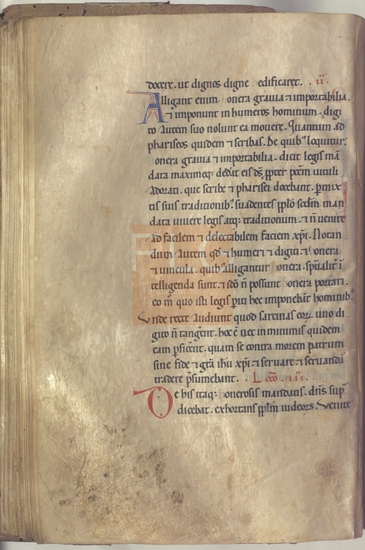 docere. ut dignos digne edificaret. .ii.
Alligant enim onera gravia ⁊ importabilia.
⁊ imponunt in humeros hominum. digi
to autem suo nolunt ea movere. Quantum ad
phariseos quidem ⁊ scribas. de quib' loquitur.
onera gravia ⁊ importabilia. dicit legis man
data
adorati. que scribe ⁊ pharisei docebant. p̱mix
tis suis traditionib'. suadentes pplo scdm man
data vivere legis atq; traditionum. ⁊ ñ venire
ad facilem ⁊ delectabilem faciem xp̄i. Notan
dum autem qd ⁊ humeri ⁊ digiti. ⁊ onera
⁊ vincula. quib' alligantur onera. spiritalit' i
telligenda sunt. ⁊ non possunt onera portari.
eo modo quo isti legis periti hec imponebant hominib'.
Unde recte audiunt quod sarcinas eorum uno di
gito ñ tangent. hoc ē nec in minimis quidem
eam pficient. quam se contra morem patrum
sine fide ⁊ grā ihū xp̄i. ⁊ servare. ⁊ servanda
tradere p̄sumebant. Lectio .iii.
De his itaq; onerosis mandatis. dn̄s sup̄
dicebat. exhortans pplm iudeorum. Venite